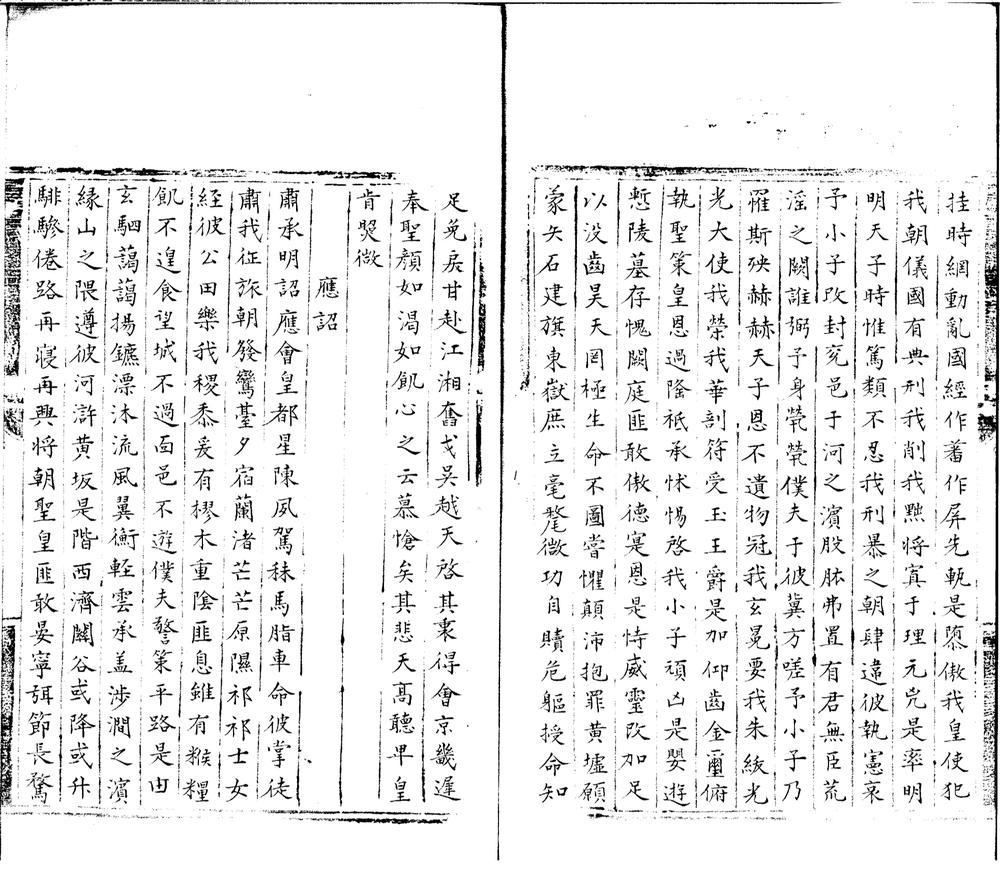 挂時網動亂國經作蕃作屏先軌是隳傲我皇使犯
我朝儀國有典刑我削我黜將寘于理元兇是率明
明天子時惟篤類不忍我刑暴之朝肆違彼執憲哀
予小子改封兗邑于河之濱股肱弗置有君無臣荒
淫之闕誰弼予身煢煢僕夫于彼冀方嗟予小子乃
罹斯殃赫赫天子恩不遺物冠我玄冕要我朱紱光
光大使我榮我華剖符受玉王爵是加仰齒金璽俯
執聖策皇恩過隆祗承怵惕咨我小子頑凶是嬰逝
慙陵墓存愧闕庭匪敢傲德寔恩是恃威靈改加足
以没齒昊天罔極生命不圖嘗懼顛沛抱罪黃墟願
蒙矢石建旗東嶽庶立毫氂微功自贖危軀授命知
足免戾甘赴江湘奮戈吳越天啓其衷得會京畿遲
奉聖顏如渴如飢心之云慕愴矣其悲天高聽卑皇
肯照微
應詔
肅承明詔應會皇都星陳夙駕秣馬脂車命彼掌徒
肅我征旅朝發鸞臺夕宿蘭渚芒芒原隰祁祁士女
經彼公田樂我稷黍爰有樛木重陰匪息雖有糇糧
飢不遑食望城不過面邑不遊僕夫警策平路是由
玄駟藹藹揚鑣漂沐流風翼衡輕雲承盖涉澗之濱
緣山之隈遵彼河滸黃坂是階西濟關谷或降或升
騑驂倦路再寢再興將朝聖皇匪敢晏寧弭節長騖